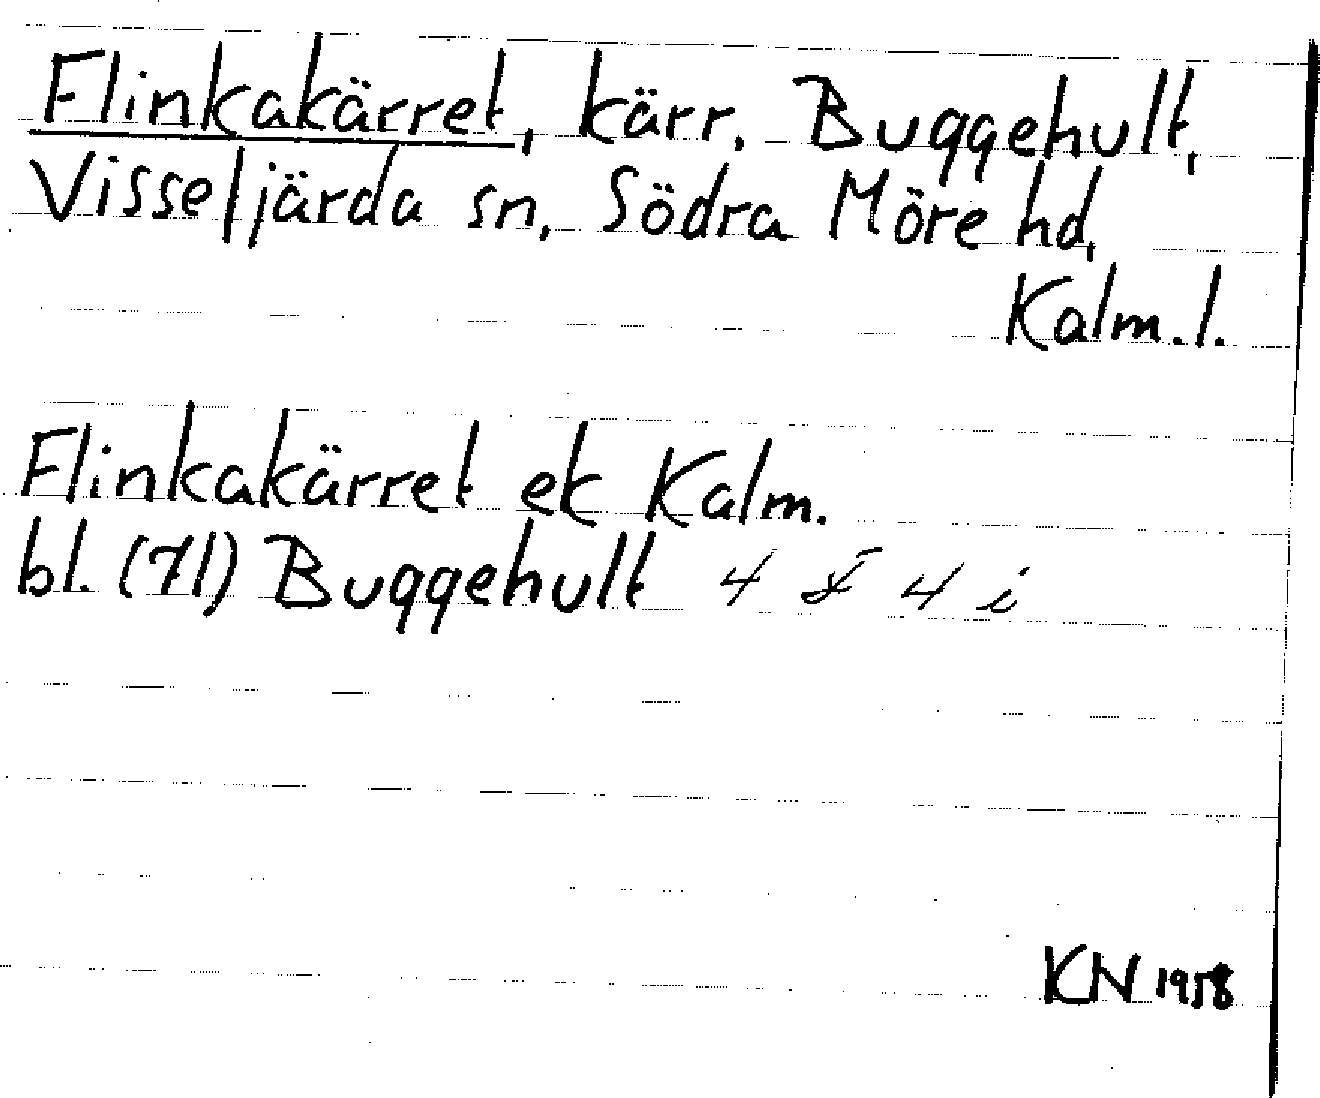 Flinkakärret, kärr, Buggehult,
Visseljärda sn, Södra Möre hd,
Kalm. l.
Flinkakärret ek Kalm.
bl. (71) Buggehult 4 F 4 i
KN 1958